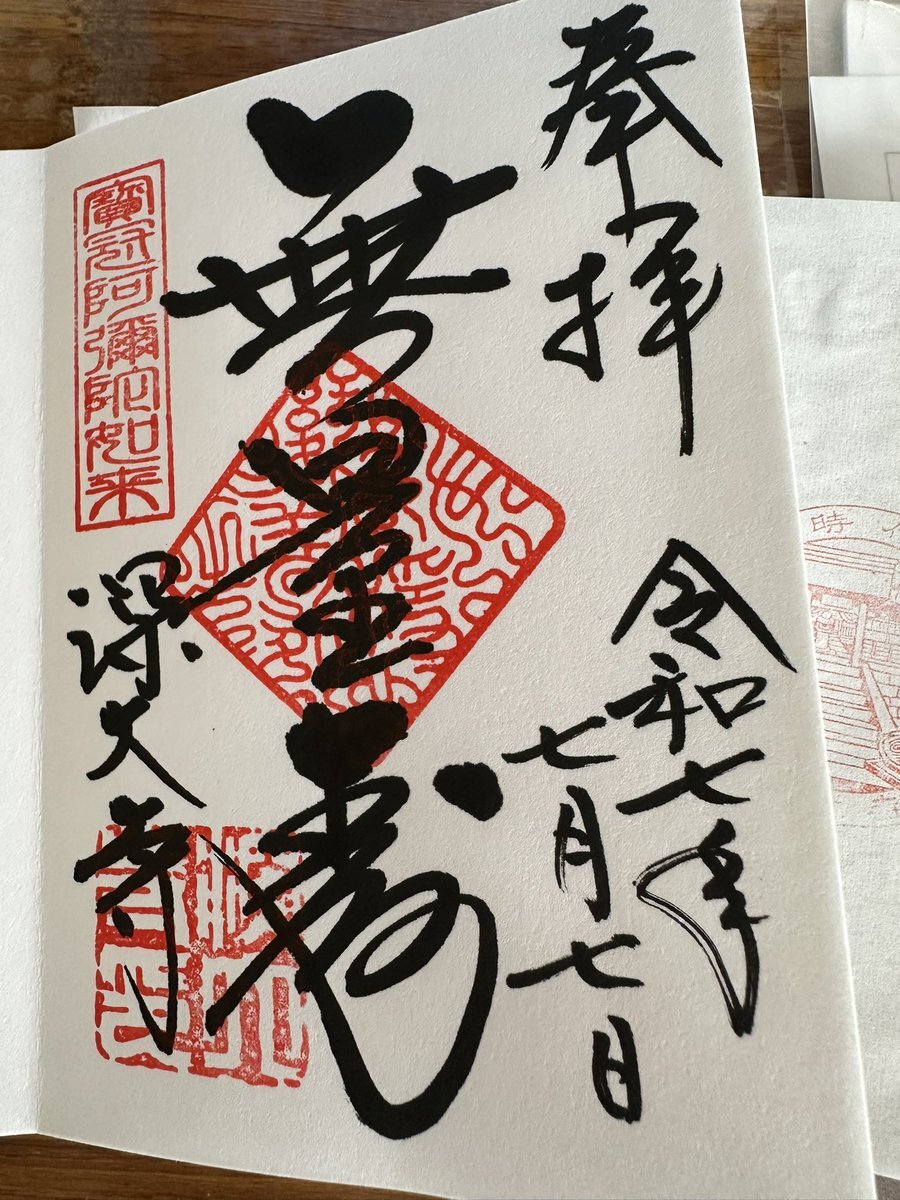 奉拝
令和七年
七月七日
無量壽
寶冠阿彌陀如来
深大寺
時